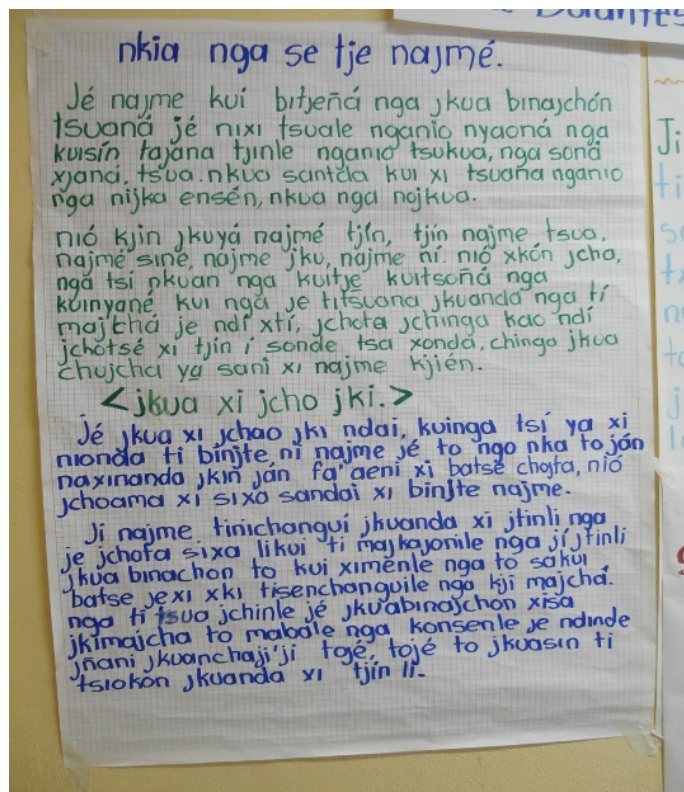 nkia nga se tje najmé.
Jé najme kui bitjeñá nga jkua binajchón
tsuaná jé nixi tsuale nganio nyaoná nga
kuisín tajana tjinle nganio tsukua, nga soná
xjaná. tsua. nkua santda kui xi tsuaña nganio
nga nijka ensén, nkua nga nojkua.
nió kjin jkuyá najmé tjín, tjín najme tsua.
najmé sine, najme jku, najme ní. nió xkón jcha,
ngá tsi nkuan nga kuitje kuitsoñá nga
kuinyané kui ngá je titsuana jkuanda nga tí
majchá je ndí xtí, jchota jchinga kao ndí
jchotsé xi tjin i sonde tsa xonda, chinga jkua
chujcha ya sani xi najme kjién.
<jkua xi jcho jki.>
Jé jkua xi jchao jki ndai, kuinga tsí ya xi
nionda ti binjte ni najme jé to ngo nka to ján
naxinanda jkin ján fa'aeni xi batse chojta, nió
jchoama xi sixa sandai xi binjte najme.
Ji najme tinichanguí jkuanda xi jtinli nga
je jchota sixa likui ti majkajonile nga jí jtinli
jkua binachon to kui ximénle nga to sakui
batse jexi xki tisenchanguile nga kji majchá.
nga ti tsua jchinle jé jkuabinajchon xisa
jkimajcha to mabale nga konsenle je ndinde
jñani jkuanchaji'ji tojé, tojé to jkuasin ti
tsiokon jkuanda xi tjín li.